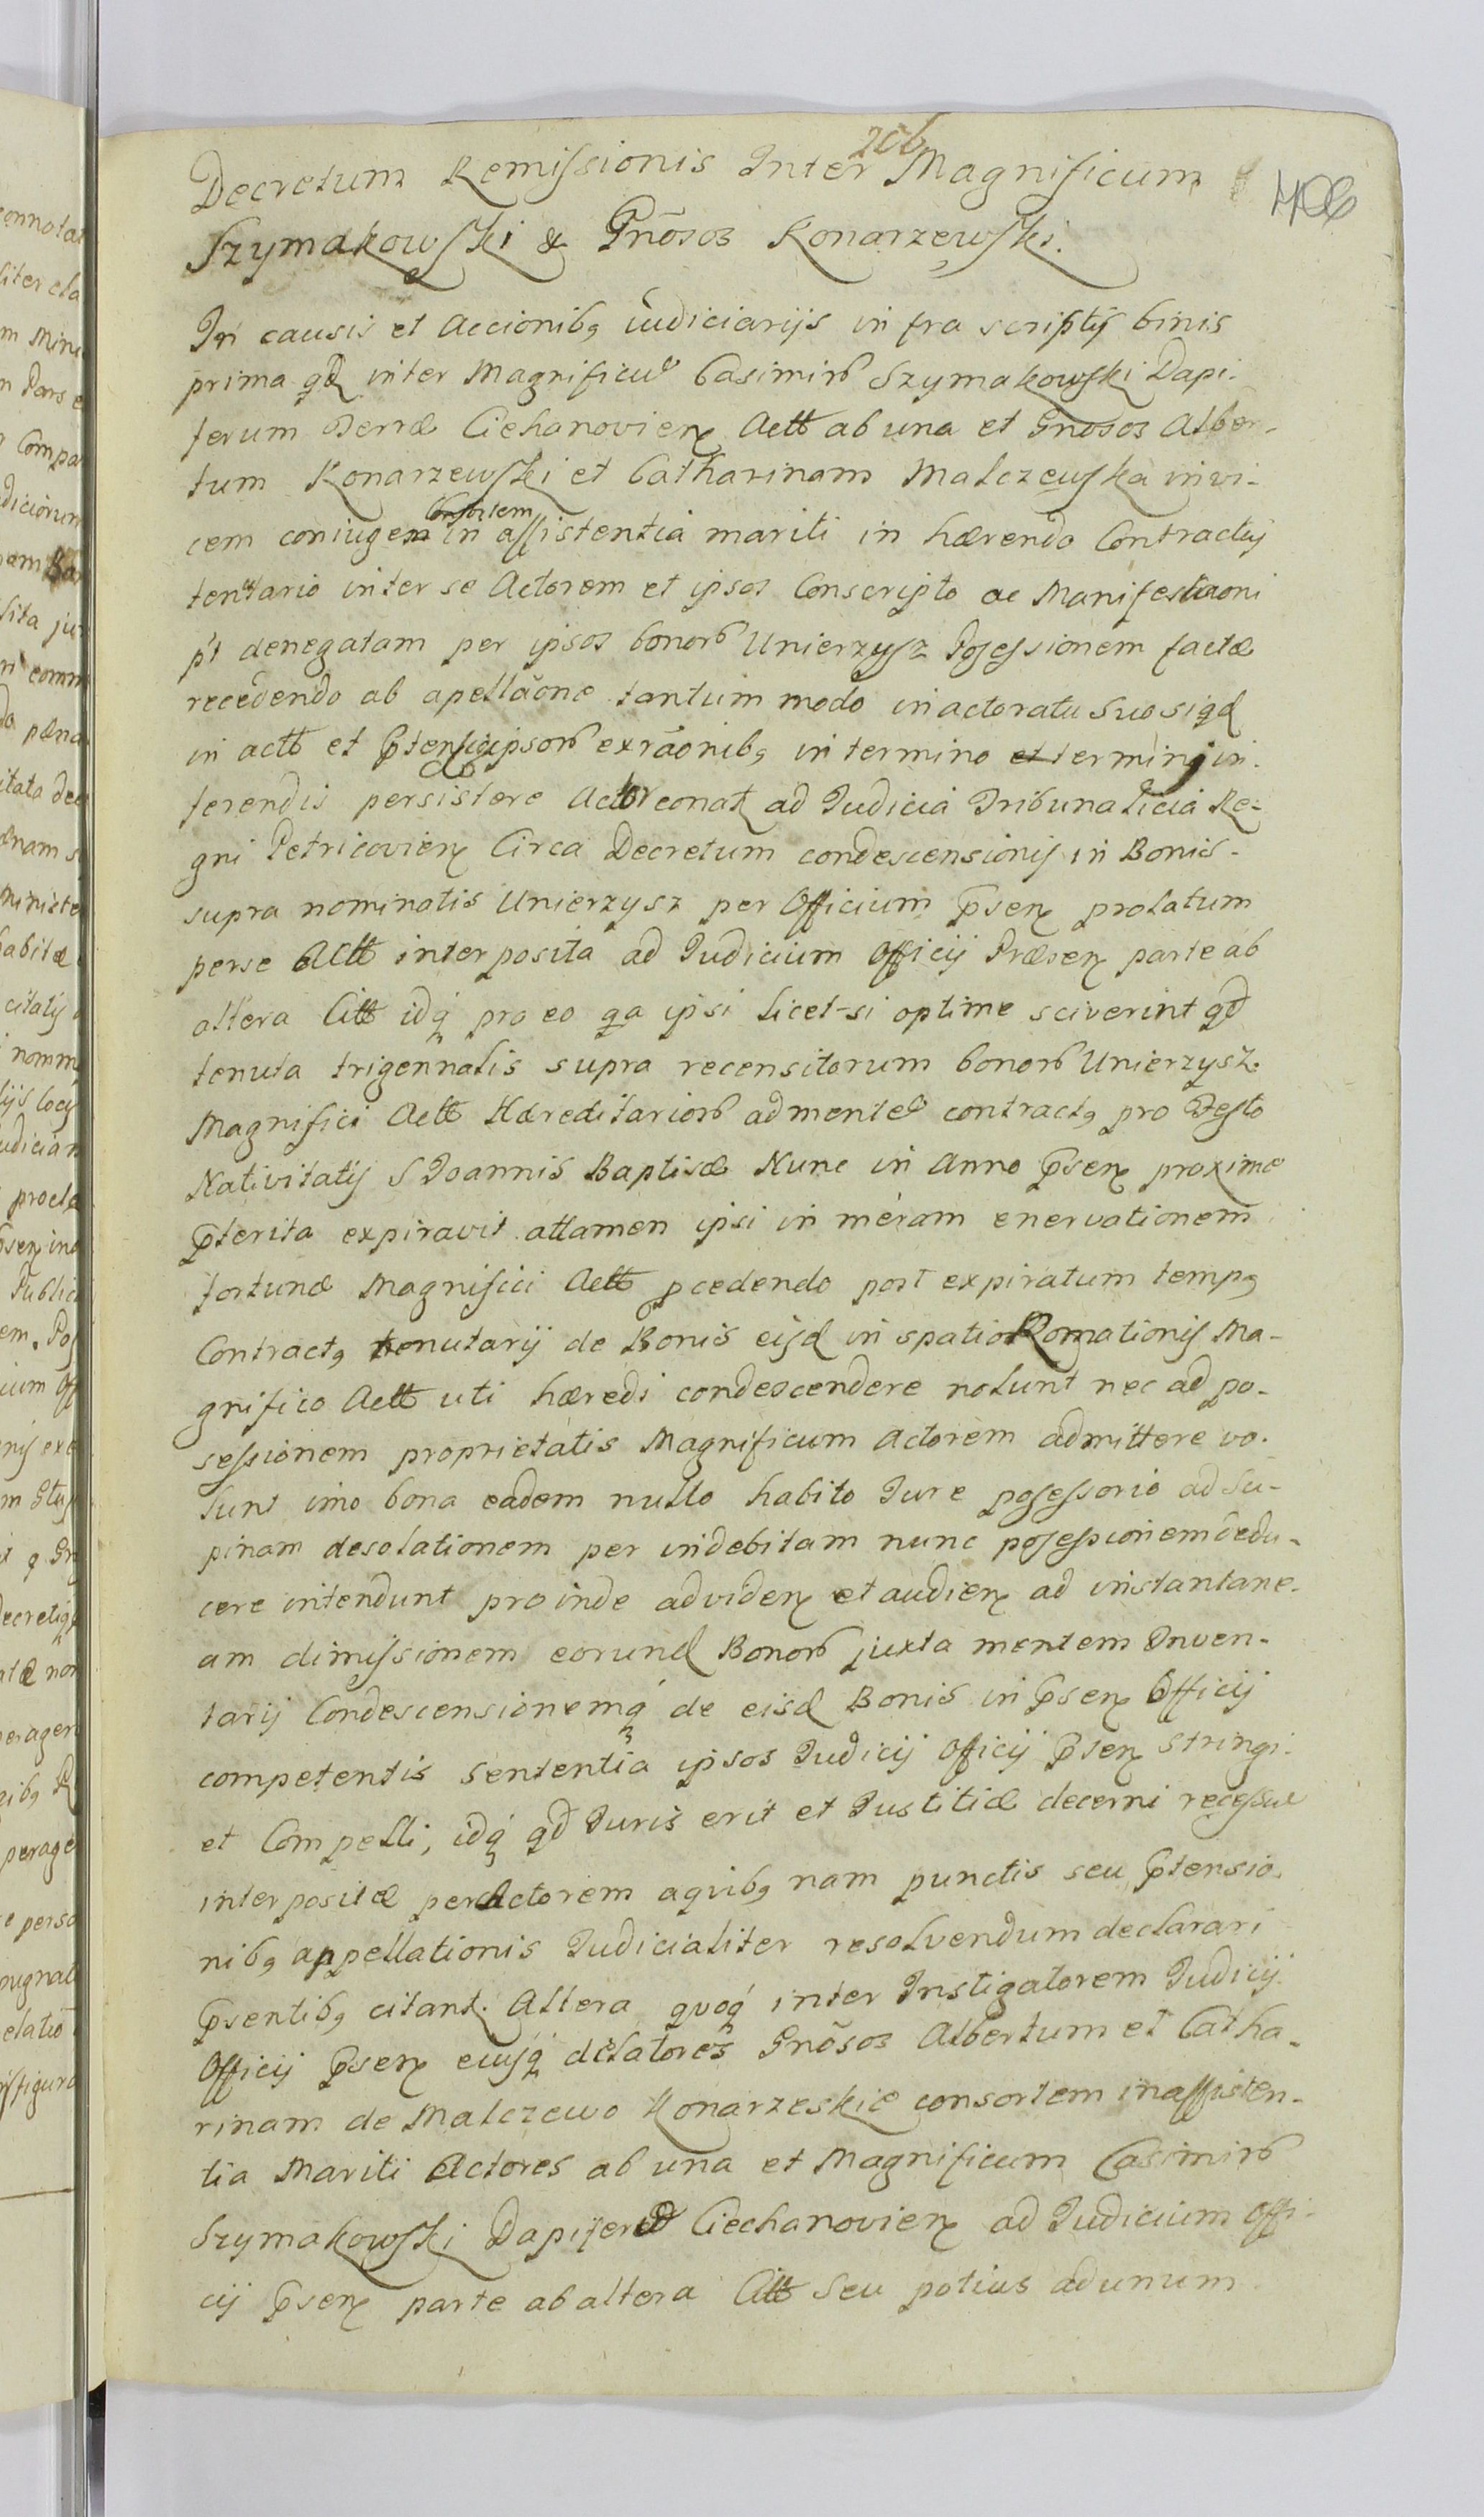 Decretum Remissionis Inter Magnificum
Szymakowski & Gnõsos Konarzewski.
In causis et Accionibq iudiciarijs in fra scriptis binis
prima qd inter Magnificũ Casimirũ Szymakowski Dapi-
ferum Terræ Ciehanovien Actt ab una et Gnõsos Alber-
tum Konarzewski et Catharinam Malczewska invi-
cem coniugem Consortem in assistentia mariti in hærendo Contractuj
tenutario inter se Actorem et ipsos Conscripto ac Manifestaoni
pt denegatam per ipsos bonorũ Unierzysz Possessionem factæ
recedendo ab apellãone tantum modo in actoratu suo siqd
in actt et ptensis ipsorũ exrãonibq in termino et termini in-
ferendis persistere Actor conat ad Judicia Tribunalicia Re-
gni Petricovien Circa Decretum condescensionis in Bonis
supra nominatis Unierzysz per Officium psen prolatum
perse Actt interposita ad Judicium Officij Præsen parte ab
altera Citt idq pro eo qa ipsi licet-si optime sciverint qd
tenuta trigennalis supra recensitorum bonorũ Unierzysz
Magnifici Actt Hæreditariorũ ad mentẽ contractq pro Festo
Nativitatis S Joannis Baptisæ Nunc in Anno psen proxime
pterita expiravit attamen ipsi in meram enervationem
fortunæ Magnifici Actt pcedendo post expiratum tempq
Contractq tenutarij de Bonis eisd in spatio Romationis Ma-
gnifico Actt uti hæredi condescendere nolunt nec ad po-
sessionem proprietatis Magnificum Actorem admittere vo-
lunt imo bona eadem nullo habito Jure possessorio ad su-
pinam desolationem per indebitam nunc possessionem dedu-
cere intendunt pro inde ad viden et audien ad instantane-
am dimissionem eorund Bonorũ juxta mentem Inven-
tarij Condescensionemq de eisd Bonis in psen Officij
competentis sententia ipsos Judicij Officij psen stringi
et Compelli, idq qd Juris erit et Justitiæ decerni recessuæ
interpositæ per Actorem a quibq nam punctis seu ptensio-
nibq appellationis Judicialiter resolvendum declarari
psentibq citant. Altera quoq inter Instigatorem Judicij
Officij psen eiusq delatores Gnõsos Albertum et Catha-
rinam de Malczewo Konarzeskie consortem in assisten-
tia Mariti Actores ab una et Magnificum Casimirũ
Szymakowski Dapiferũ Ciechanovien ad Judicium Offi-
cij psen parte ab altera Citt seu potius ad unum